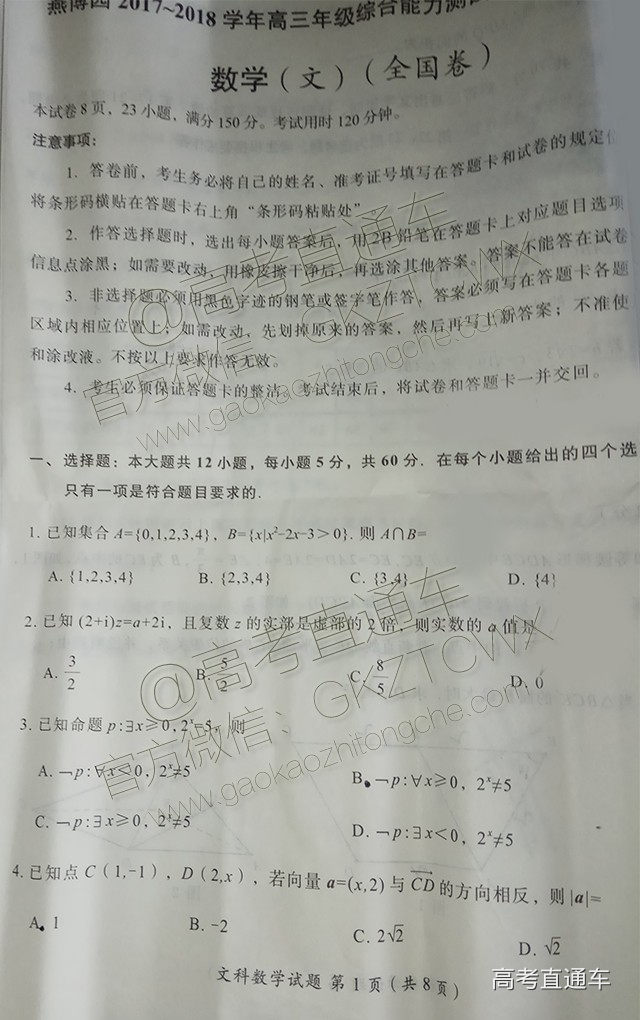 燕博园 2017~2018 学年高三年级综合能力测试
数学（文）（全国卷）
本试卷8页，23小题，满分150分。考试用时120分钟。
注意事项：
1. 答卷前，考生务必将自己的姓名、准考证号填写在答题卡和试卷的规定位
将条形码横贴在答题卡右上角“条形码粘贴处”
2. 作答选择题时，选出每小题答案后，用2B铅笔在答题卡上对应题目选项
信息点涂黑；如需要改动，用橡皮擦干净后，再选涂其他答案。答案不能答在试卷
3. 非选择题必须用黑色字迹的钢笔或签字笔作答，答案必须写在答题卡各题
区域内相应位置上；如需改动，先划掉原来的答案，然后再写上新答案；不准使
和涂改液。不按以上要求作答无效。
4. 考生必须保证答题卡的整洁。考试结束后，将试卷和答题卡一并交回。
@高考直通车
官方微信：GKZTCWX
www.gaokaozhitongche.com
一、选择题：本大题共12小题，每小题5分，共60分. 在每个小题给出的四个选
只有一项是符合题目要求的.
1. 已知集合 A={0,1,2,3,4}，B={x|x²-2x-3＞0}. 则 A∩B=
A. {1,2,3,4} B. {2,3,4} C. {3,4} D. {4}
2. 已知 (2+i)z=a+2i，且复数 z 的实部是虚部的2倍，则实数的 a 值是
A. 3/2 B. 5/2 C. 8/5 D. 0
3. 已知命题 p:∃x≥0, 2ˣ=5，则
A. ¬p:∀x<0，2ˣ≠5 B. ¬p:∀x≥0，2ˣ≠5
C. ¬p:∃x≥0，2ˣ≠5 D. ¬p:∃x<0，2ˣ≠5
@高考直通车
官方微信：GKZTCWX
www.gaokaozhitongche.com
4. 已知点 C（1,-1），D（2,x），若向量 a=(x,2) 与 CD 的方向相反，则 |a|=
A. 1 B. -2 C. 2√2 D. √2
文科数学试题 第1页（共8页）
高考直通车